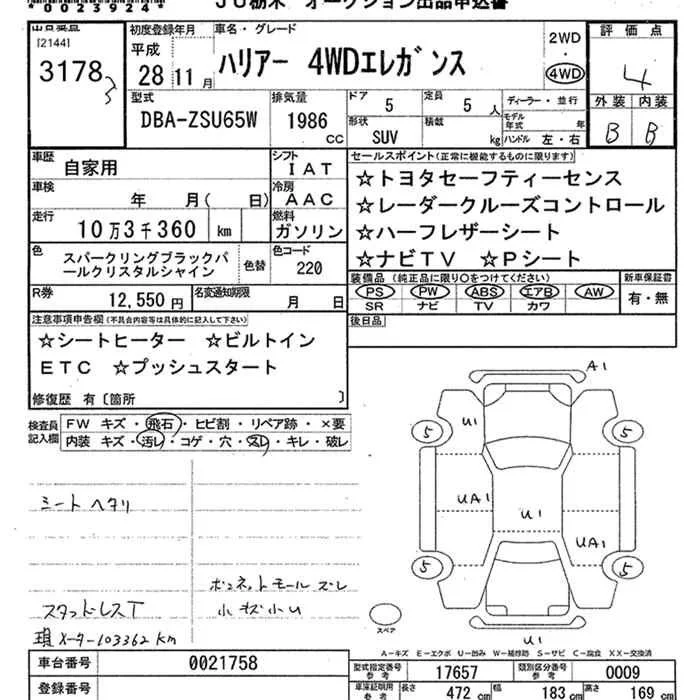 *0023924*
JU栃木 オークション出品申込書
[2144]
3178
初度登録年月
平成
28年 11月
車名・グレード
ハリアー 4WDエレガンス
2WD
・
4WD
評価点
4
外装 内装
B B
型式
DBA-ZSU65W
排気量
1986
CC
ドア
5
定員
5 人
形状
SUV
積載
kg
ディーラー・並行
モデル年式 年
ハンドル 左・右
車歴
自家用
シフト
IAT
車検
年 月( 日)
冷房
AAC
走行
10万3千360 km
燃料
ガソリン
色
スパークリングブラックパ
ールクリスタルシャイン
色替
色コード
220
R券
12,550円
名変通知期限
月 日
セールスポイント(正常に機能するものに限ります)
☆トヨタセーフティーセンス
☆レーダークルーズコントロール
☆ハーフレザーシート
☆ナビTV ☆Pシート
装備品 (純正品に限り○をつけてください)
PS PW ABS エアB AW
SR ナビ TV カワ
新車保証書
有・無
後日品
注意事項申告欄(不具合内容等は具体的に記入して下さい)
☆シートヒーター ☆ビルトイン
ETC ☆プッシュスタート
修復歴 有〔箇所 〕
検査員
記入欄
FW キズ・飛石・ヒビ割・リペア跡・×要
内装 キズ・汚レ・コゲ・穴・スレ・キレ・破レ
シート ヘタリ
ボンネットモール ズレ
スタッドレスT
小キズ小U
現メーター103362km
A1
U1
5
5
UA1
U1
UA1
5
5
U1
スペア
A-キズ E-エクボ U-凹み W-補修跡 S-サビ C-腐食 XX-交換済
車台番号
0021758
登録番号
型式指定番号
参考
17657
類別区分番号
参考
0009
車庫証明用
参考
長さ
472 cm
幅
183 cm
高さ
169 cm